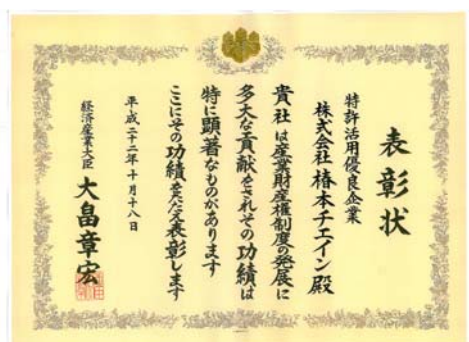 表彰状
特許活用優良企業
株式会社 椿本チエイン 殿
貴社は産業財産権制度の発展に
多大な貢献をされその功績は
特に顕著なものがあります
ここにその功績をたたえ表彰します
平成二十二年十月十八日
経済産業大臣 大畠章宏